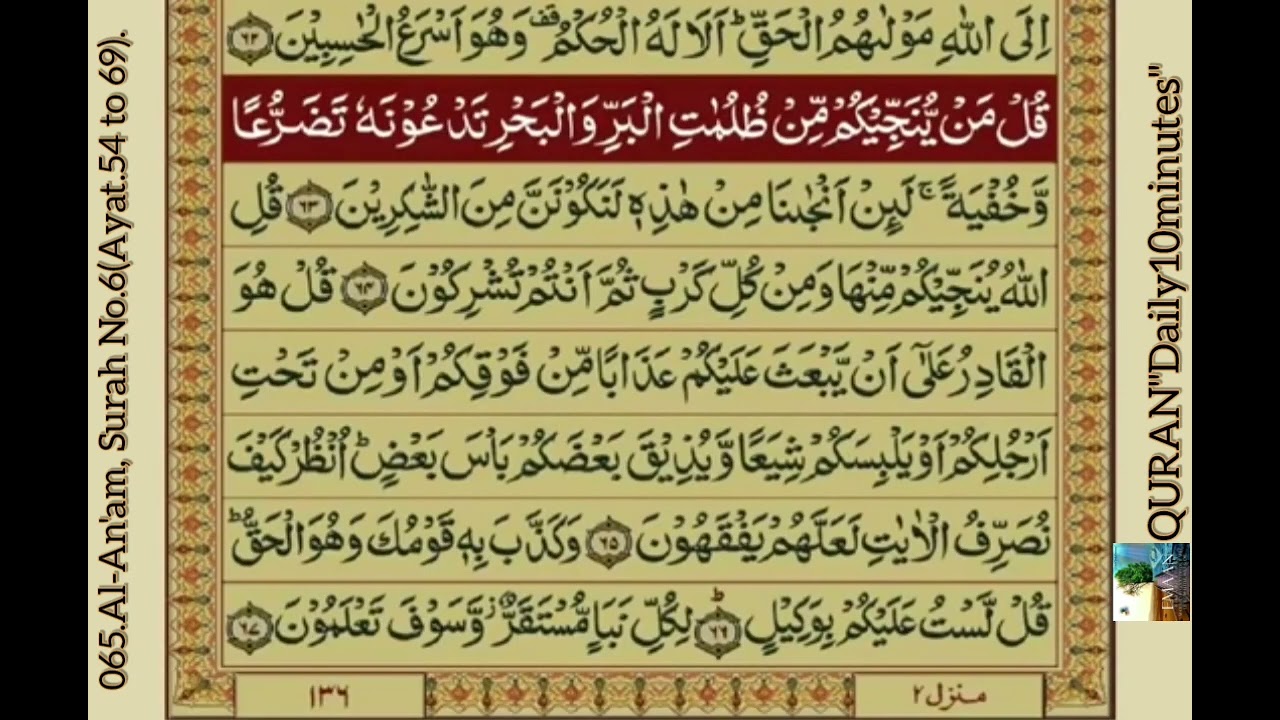 065.Al-An'am, Surah No.6(Ayat.54 to 69).
اِلَى اللّٰهِ مَوْلٰىهُمُ الْحَقِّ ؕ اَلَا لَهُ الْحُكْمُ ۫ وَهُوَ اَسْرَعُ الْحٰسِبِيْنَ ﴿۶۲﴾
قُلْ مَنْ يُّنَجِّيْكُمْ مِّنْ ظُلُمٰتِ الْبَرِّ وَالْبَحْرِ تَدْعُوْنَهٗ تَضَرُّعًا
وَّخُفْيَةً ۚ لَىِٕنْ اَنْجٰىنَا مِنْ هٰذِهٖ لَنَكُوْنَنَّ مِنَ الشّٰكِرِيْنَ ﴿۶۳﴾ قُلِ
اللّٰهُ يُنَجِّيْكُمْ مِّنْهَا وَمِنْ كُلِّ كَرْبٍ ثُمَّ اَنْتُمْ تُشْرِكُوْنَ ﴿۶۴﴾ قُلْ هُوَ
الْقَادِرُ عَلٰۤى اَنْ يَّبْعَثَ عَلَيْكُمْ عَذَابًا مِّنْ فَوْقِكُمْ اَوْ مِنْ تَحْتِ
اَرْجُلِكُمْ اَوْ يَلْبِسَكُمْ شِيَعًا وَّيُذِيْقَ بَعْضَكُمْ بَاْسَ بَعْضٍ ؕ اُنْظُرْ كَيْفَ
نُصَرِّفُ الْاٰيٰتِ لَعَلَّهُمْ يَفْقَهُوْنَ ﴿۶۵﴾ وَكَذَّبَ بِهٖ قَوْمُكَ وَهُوَ الْحَقُّ ؕ
قُلْ لَّسْتُ عَلَيْكُمْ بِوَكِيْلٍ ؕ ﴿۶۶﴾ لِكُلِّ نَبَاٍ مُّسْتَقَرٌّ ؗ وَّسَوْفَ تَعْلَمُوْنَ ﴿۶۷﴾
منزل ۲
۱۳۶
QURAN"Daily10minutes"
EMAAN